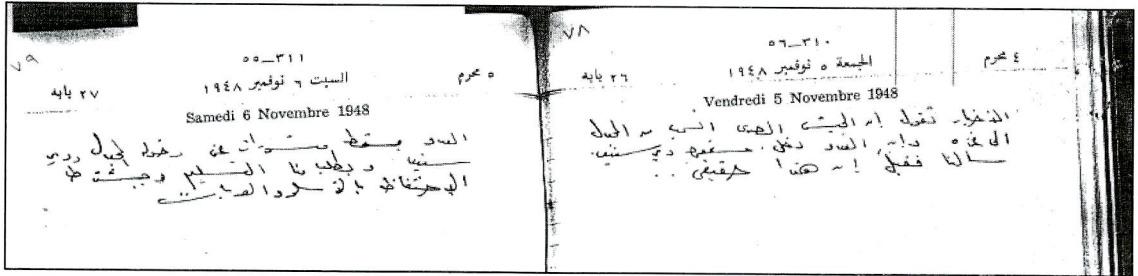 ٧٨
٣١٠ــ٥٦
٤ محرم الجمعة ٥ نوفمبر ١٩٤٨ ٢٦ بابه
Vendredi 5 Novembre 1948
الأخبار تقول إن الجيش المصرى انسحب من المجدل
الى غزه وان العدو دخل دير سنيد
سألنا فقيل إن هذا حقيقى ..
٧٩
٣١١ــ٥٥
٥ محرم السبت ٦ نوفمبر ١٩٤٨ ٢٧ بابه
Samedi 6 Novembre 1948
العدو يسقط منشورات عن سقوط المجدل ودير
سنيد ويطلب منا التسليم
الاحتفاظ